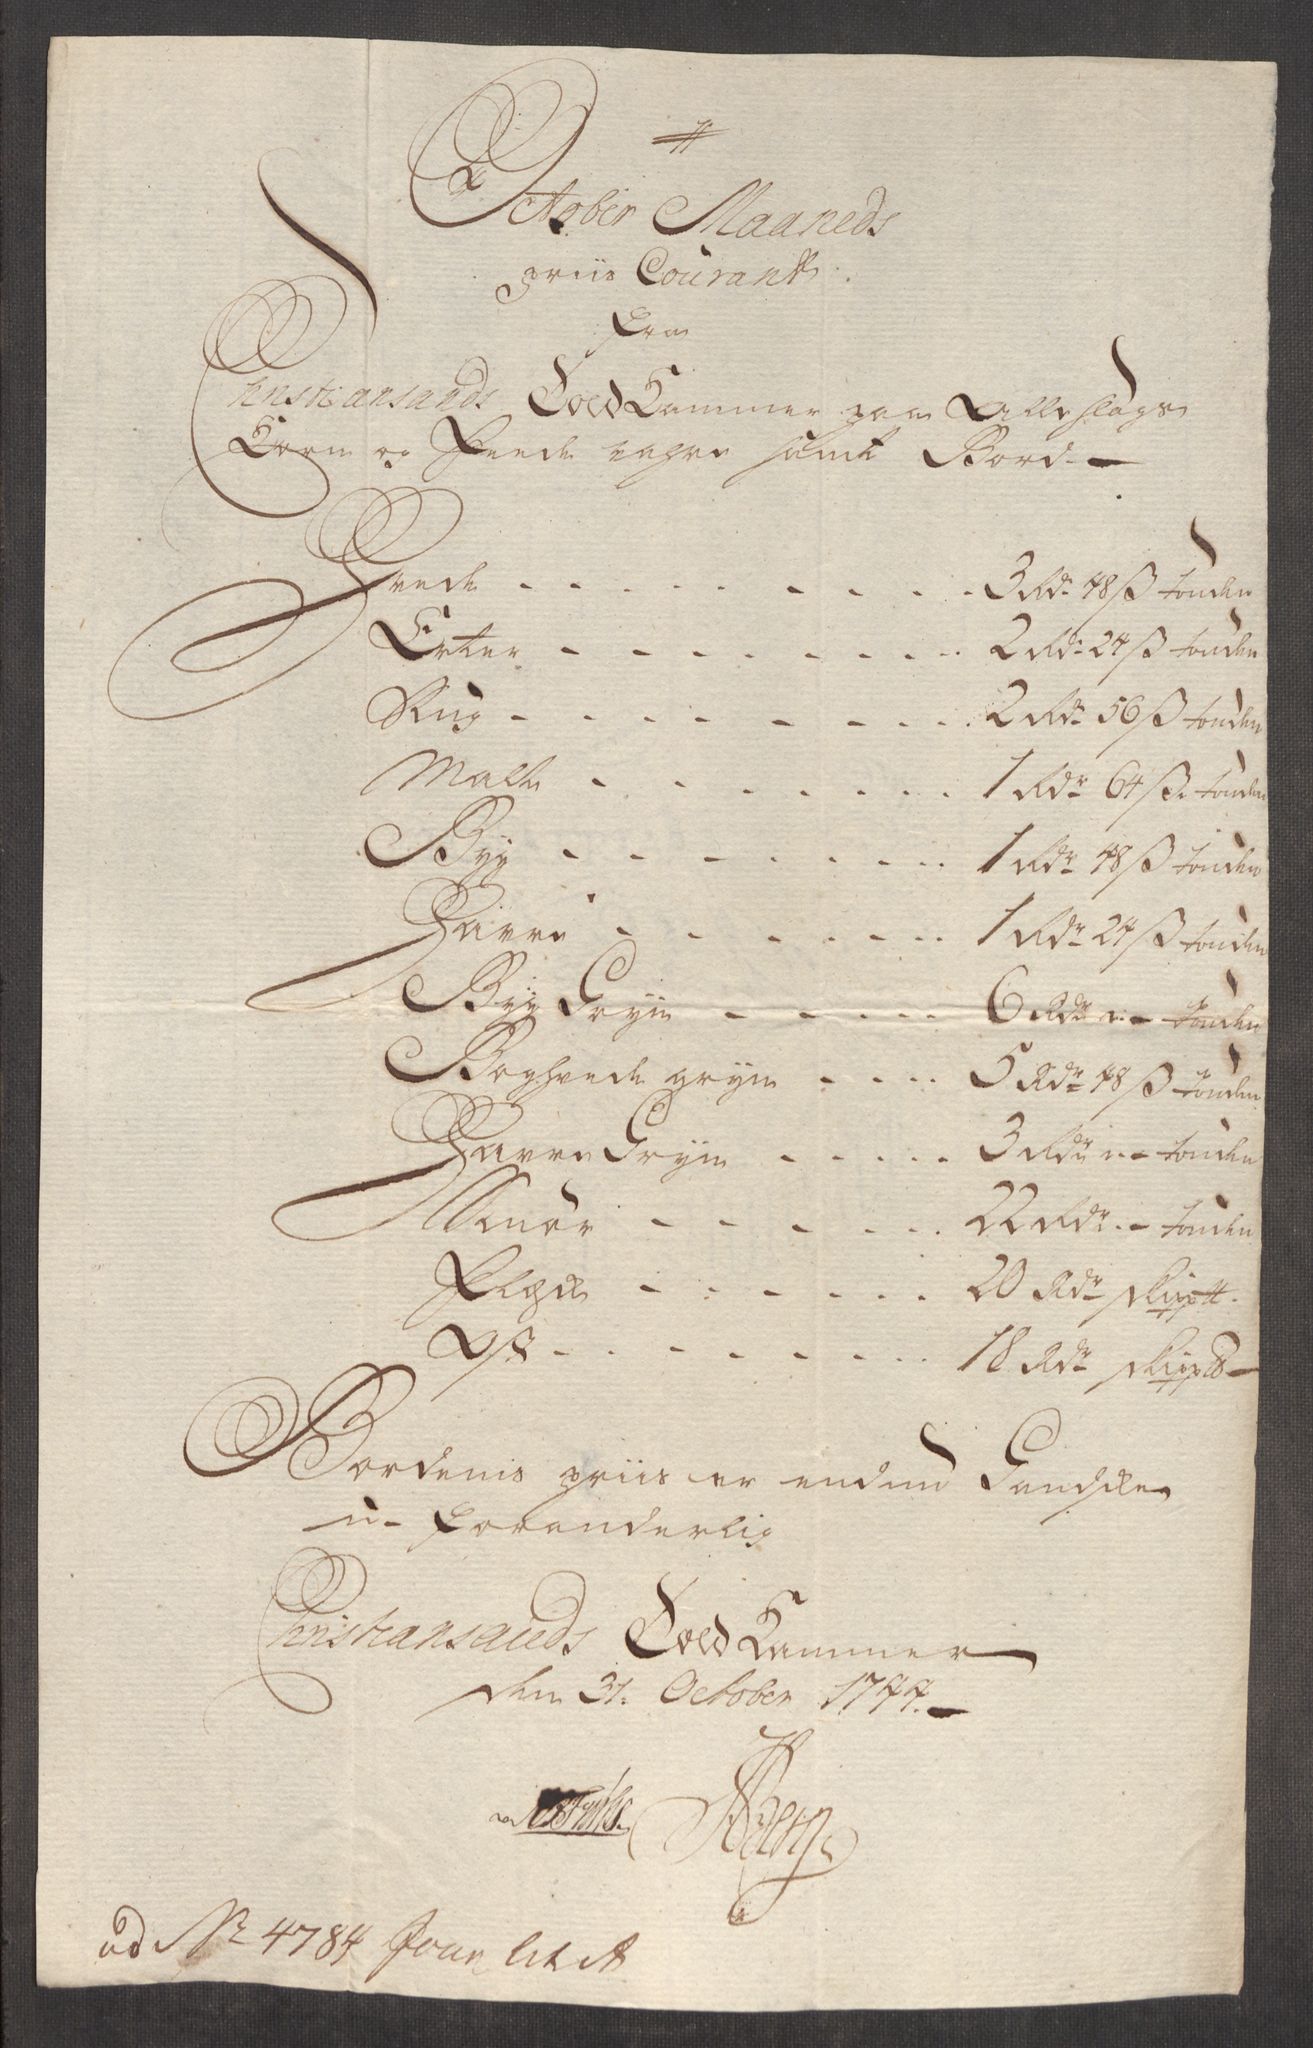 October Maaneds
priis Courant
fra
Christiansands Told Kammer paa Alle slags
Korn og Feede vahre samt Bord
Hvede - - - - - - - - - 3 Rdr 48 ß tønden
Erter - - - - - - - - - 2 Rdr 24 ß tønden
Rug - - - - - - - - - 2 Rdr 56 ß tønden
Malt - - - - - - - 1 Rdr 64 ß tønden
Byg - - - - - - - - 1 Rdr 48 ß tønden
Havre - - - - - - - 1 Rdr 24 ß tønden
Byg Gryn - - - - - 6 Rdr - tønden
Boghvede gryn - - - - 5 Rdr 48 ß tønden
Havre Gryn - - - - - 3 Rdr - tønden
Smør - - - - - - 22 Rdr - tønden
Flesk - - - - - - 20 Rdr skipp℔
Ost - - - - - - - - 18 Rdr skipp℔
Bordenis priis er endnu Gandske
u-foranderlig
Christiansands Told Kammer
den 31. October 1744.
ad No 4784 Jour lit A